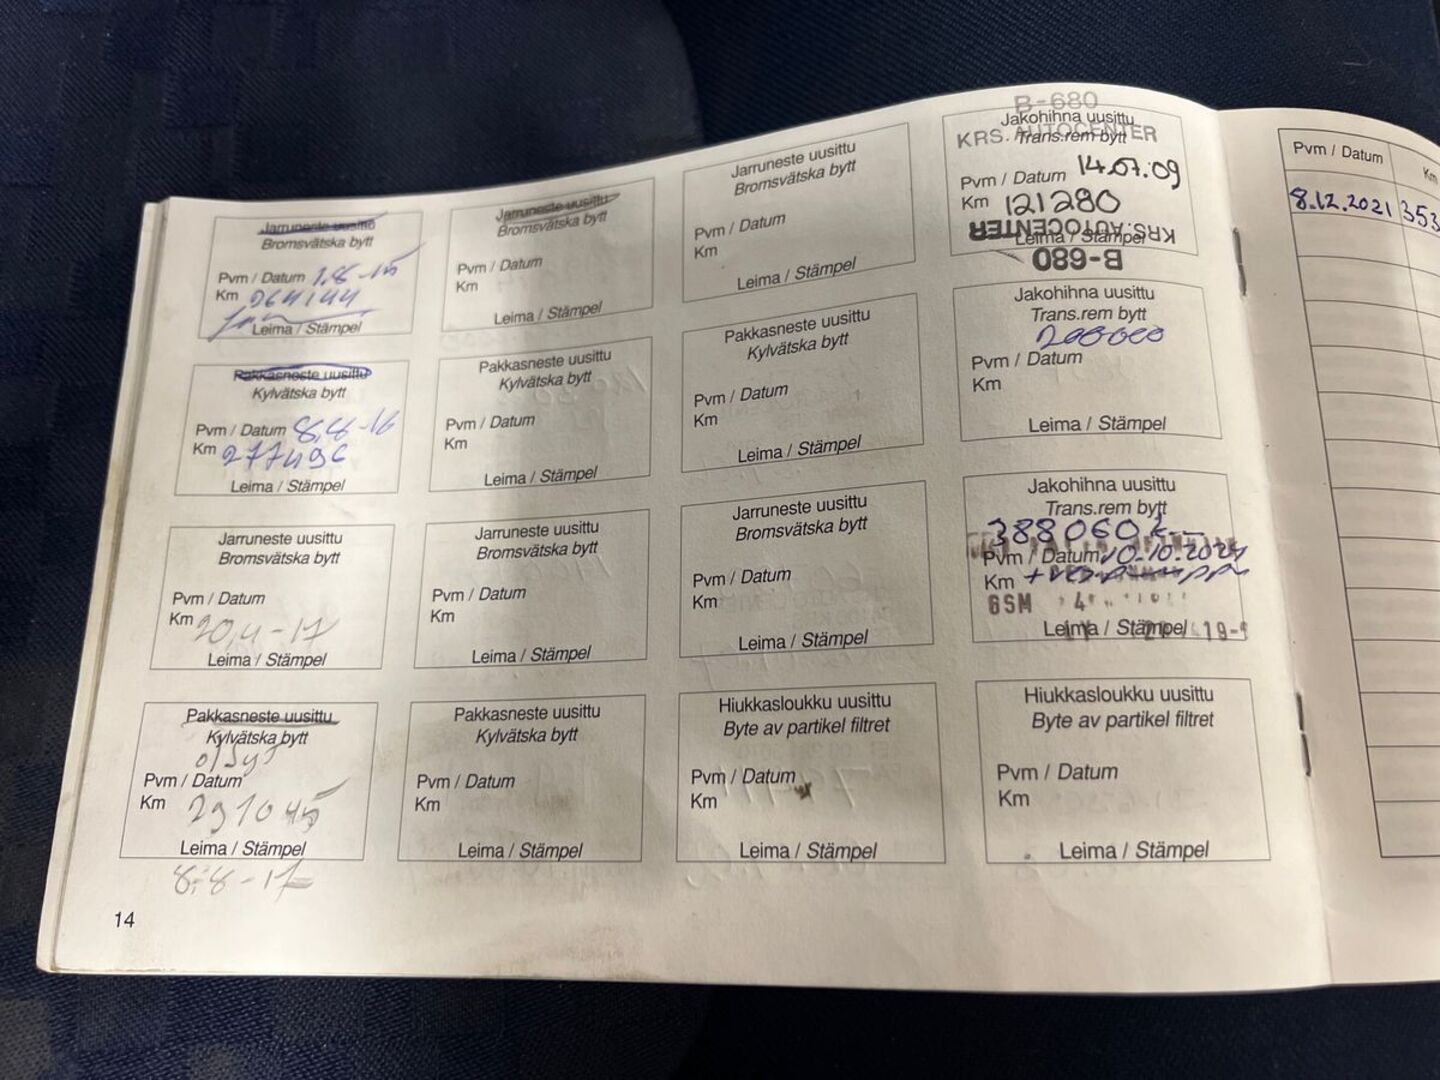 Jarruneste uusittu
Bromsvätska bytt
Pvm / Datum 1.8-15
Km 264144
Leima / Stämpel
Pakkasneste uusittu
Kylvätska bytt
Pvm / Datum 8.8-16
Km 277496
Leima / Stämpel
Jarruneste uusittu
Bromsvätska bytt
Pvm / Datum
Km 20,4-17
Leima / Stämpel
Pakkasneste uusittu
Kylvätska bytt
Pvm / Datum
Km 291045
Leima / Stämpel
8.-8-17
14
Jarruneste uusittu
Bromsvätska bytt
Pvm / Datum
Km
Leima / Stämpel
Pakkasneste uusittu
Kylvätska bytt
Pvm / Datum
Km
Leima / Stämpel
Jarruneste uusittu
Bromsvätska bytt
Pvm / Datum
Km
Leima / Stämpel
Pakkasneste uusittu
Kylvätska bytt
Pvm / Datum
Km
Leima / Stämpel
Jarruneste uusittu
Bromsvätska bytt
Pvm / Datum
Km
Leima / Stämpel
Pakkasneste uusittu
Kylvätska bytt
Pvm / Datum
Km
Leima / Stämpel
Jarruneste uusittu
Bromsvätska bytt
Pvm / Datum
Km
Leima / Stämpel
Hiukkasloukku uusittu
Byte av partikel filtret
Pvm / Datum
Km
Leima / Stämpel
B-680
Jakohihna uusittu
KRS. AUTOCENTER
Trans.rem bytt
Pvm / Datum 14.07.09
Km 121280
KRS. AUTOCENTER
Leima / Stämpel
B-680
Jakohihna uusittu
Trans.rem bytt
200000
Pvm / Datum
Km
Leima / Stämpel
Jakohihna uusittu
Trans.rem bytt
388060k
Pvm / Datum 10-10.2024
Km
GSM
Leima / Stämpel
Hiukkasloukku uusittu
Byte av partikel filtret
Pvm / Datum
Km
Leima / Stämpel
Pvm / Datum Km
8.12.2021 353